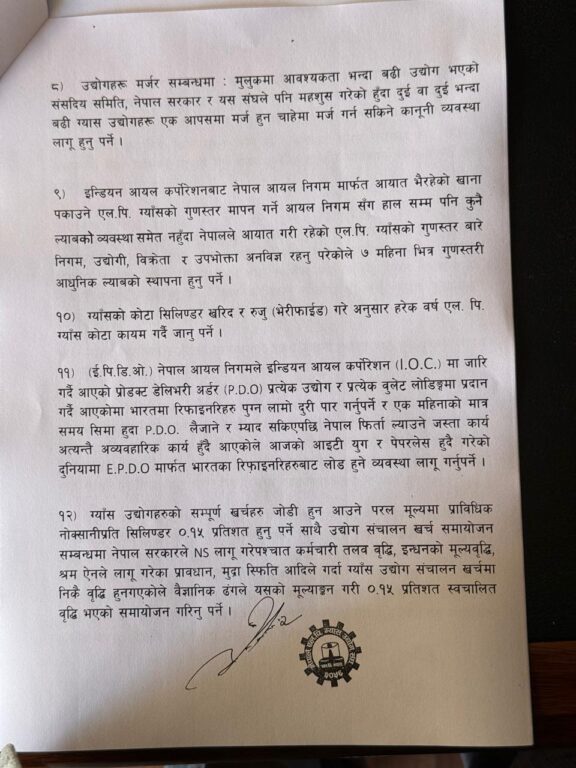 ८) उद्योगहरू मर्जर सम्बन्धमा : मुलुकमा आवश्यकता भन्दा बढी उद्योग भएको
संसदिय समिति, नेपाल सरकार र यस संघले पनि महशुस गरेको हुँदा दुई वा दुई भन्दा
बढी ग्यास उद्योगहरू एक आपसमा मर्ज हुन चाहेमा मर्ज गर्न सकिने कानूनी व्यवस्था
लागू हुनु पर्ने ।
९) इन्डियन आयल कर्पोरेशनबाट नेपाल आयल निगम मार्फत आयात भैरहेको खाना
पकाउने एल.पि. ग्याँसको गुणस्तर मापन गर्ने आयल निगम संग हाल सम्म पनि कुनै
ल्याबको व्यवस्था समेत नहुँदा नेपालले आयात गरी रहेको एल.पि. ग्याँसको गुणस्तर बारे
निगम, उद्योगी, विक्रेता र उपभोक्ता अनविज्ञ रहनु परेकोले ७ महिना भित्र गुणस्तरी
आधुनिक ल्याबको स्थापना हुनु पर्ने ।
१०) ग्याँसको कोटा सिलिण्डर खरिद र रुजु (भेरीफाईड) गरे अनुसार हरेक वर्ष एल. पि.
ग्याँस कोटा कायम गर्दै जानु पर्ने ।
११) (ई.पि.डि.ओ.) नेपाल आयल निगमले इन्डियन आयल कर्पोरेशन (I.O.C.) मा जारि
गर्दै आएको प्रोडक्ट डेलिभरी अर्डर (P.D.O) प्रत्येक उद्योग र प्रत्येक वुलेट लोडिङ्गमा प्रदान
गर्दै आएकोमा भारतमा रिफाइनरिहरु पुग्न लामो दुरी पार गर्नुपर्ने र एक महिनाको मात्र
समय सिमा हुदा P.D.O. लैजाने र म्याद सकिएपछि नेपाल फिर्ता ल्याउने जस्ता कार्य
अत्यन्तै अव्यवहारिक कार्य हुँदै आएकोले आजको आइटी युग र पेपरलेस हुदै गरेको
दुनियामा E.P.D.O मार्फत भारतका रिफाइनरिहरुबाट लोड हुने व्यवस्था लागू गर्नुपर्ने ।
१२) ग्याँस उद्योगहरुको सम्पूर्ण खर्चहरु जोडी हुन आउने परल मूल्यमा प्राविधिक
नोक्सानीप्रति सिलिण्डर ०.१५ प्रतिशत हुनु पर्ने साथै उद्योग संचालन खर्च समायोजन
सम्बन्धमा नेपाल सरकारले NS लागू गरेपश्चात कर्मचारी तलव वृद्धि, इन्धनको मूल्यवृद्धि,
श्रम ऐनले लागू गरेका प्रावधान, मुद्रा स्फिति आदिले गर्दा ग्याँस उद्योग संचालन खर्चमा
निकै वृद्धि हुनगएकोले वैज्ञानिक ढंगले यसको मूल्याङ्कन गरी ०.१५ प्रतिशत स्वचालित
वृद्धि भएको समायोजन गरिनु पर्ने ।